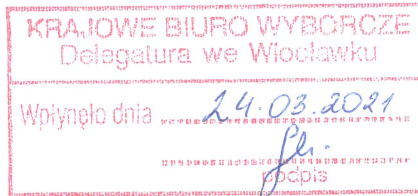 KRAJOWE BIURO WYBORCZE
Delegatura we Włocławku
Wpłynęło dnia 24.03.2021
podpis